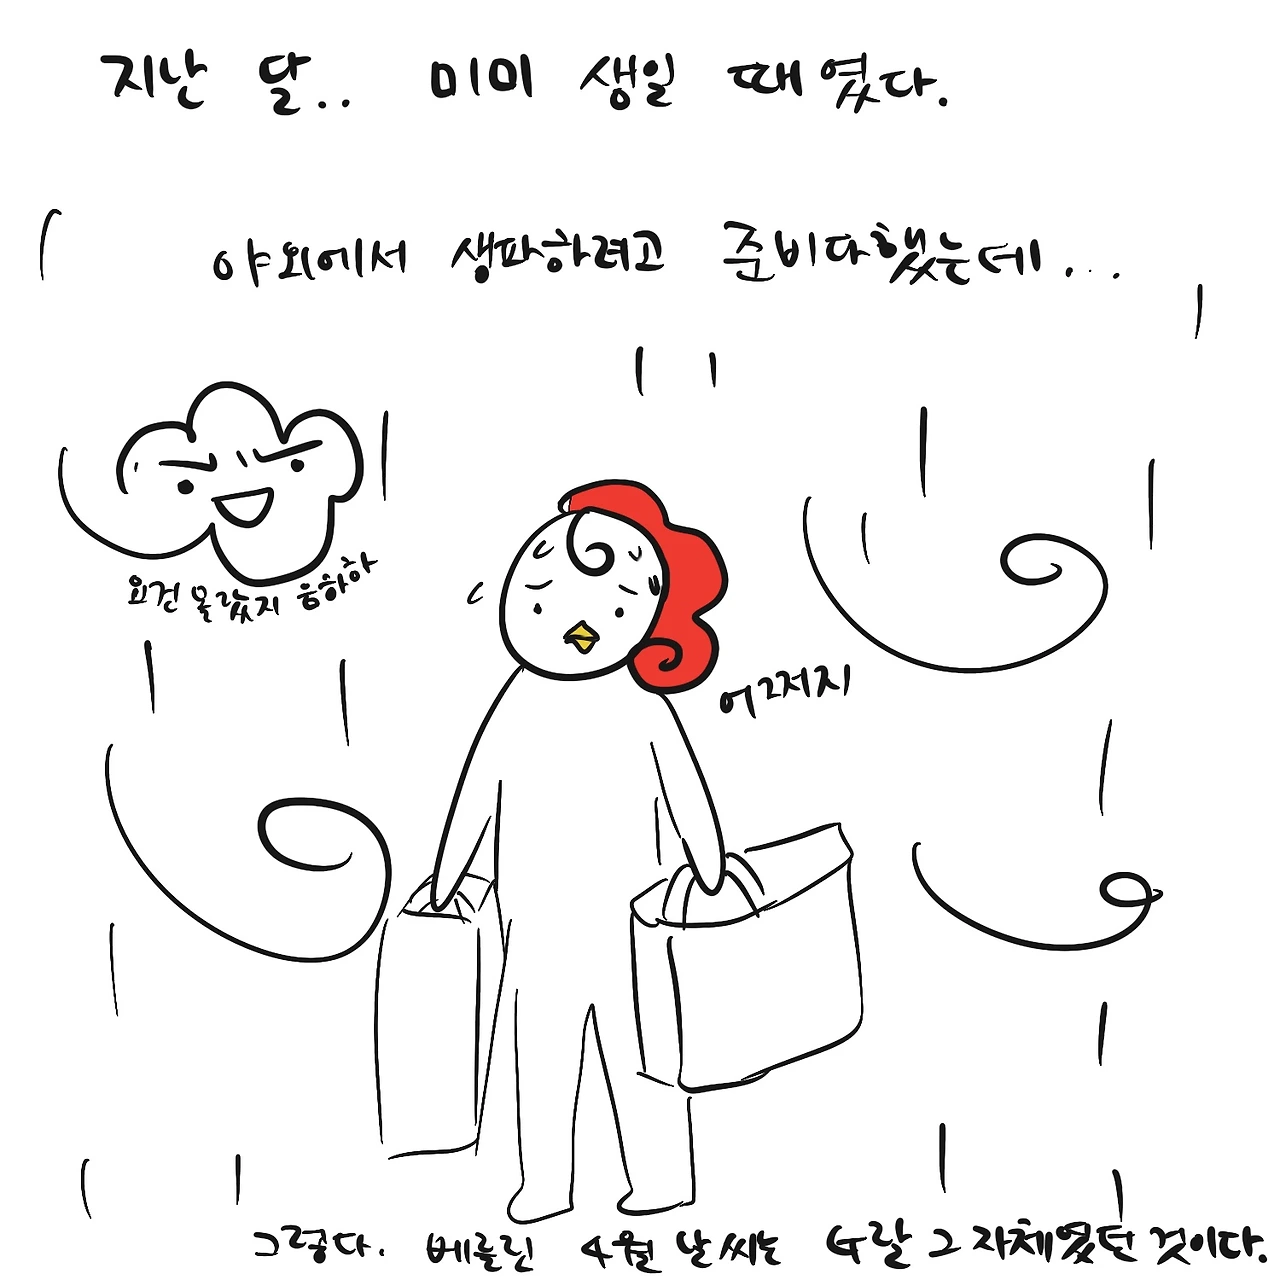 지난 달.. 미미 생일 때였다.
야외에서 생파하려고 준비다했는데...
요건 몰랐지 음하하
어쩌지
그렇다. 베를린 4월 날씨는 G랄 그 자체였던 것이다.